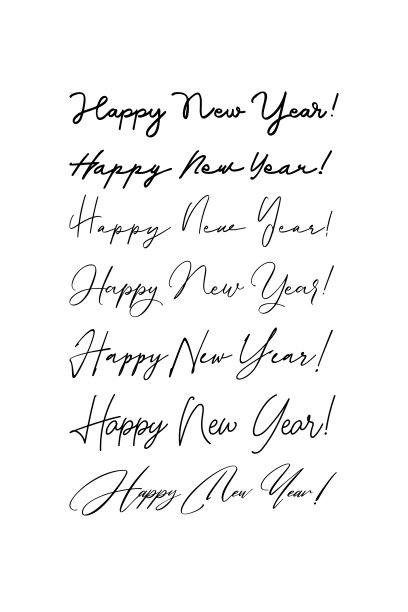 Happy New Year!
Happy New Year!
Happy New Year!
Happy New Year!
Happy New Year!
Happy New Year!
Happy New Year!